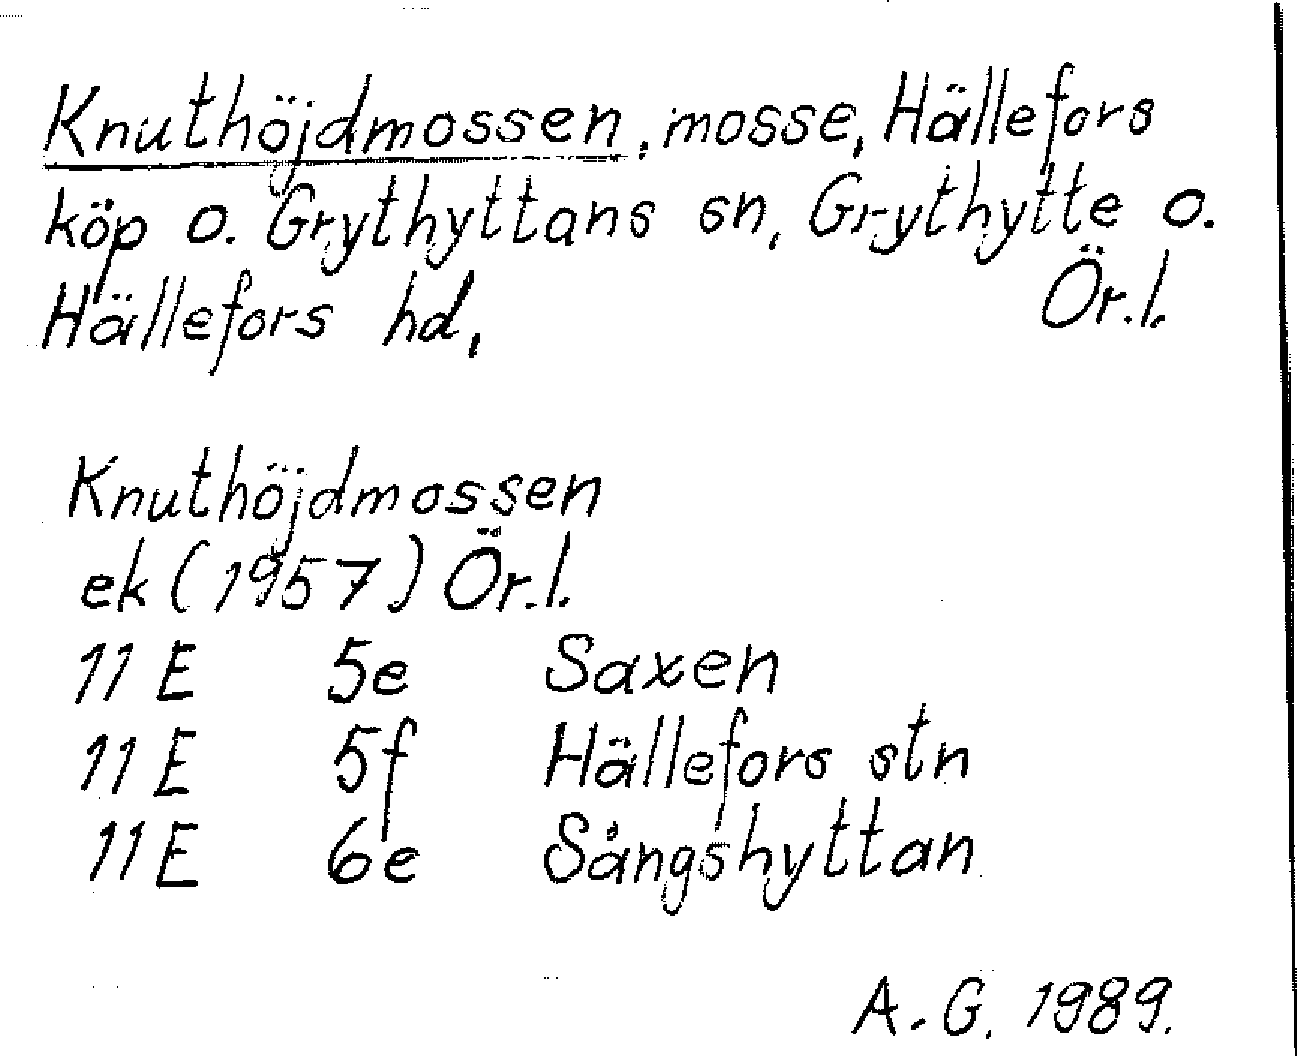 Knuthöjdmossen, mosse, Hällefors
köp o. Grythyttans sn, Grythytte o.
Hällefors hd, Ör.l.
Knuthöjdmossen
ek (1957) Ör.l.
11 E 5e Saxen
11 E 5f Hällefors stn
11 E 6e Sångshyttan
A.G. 1989.